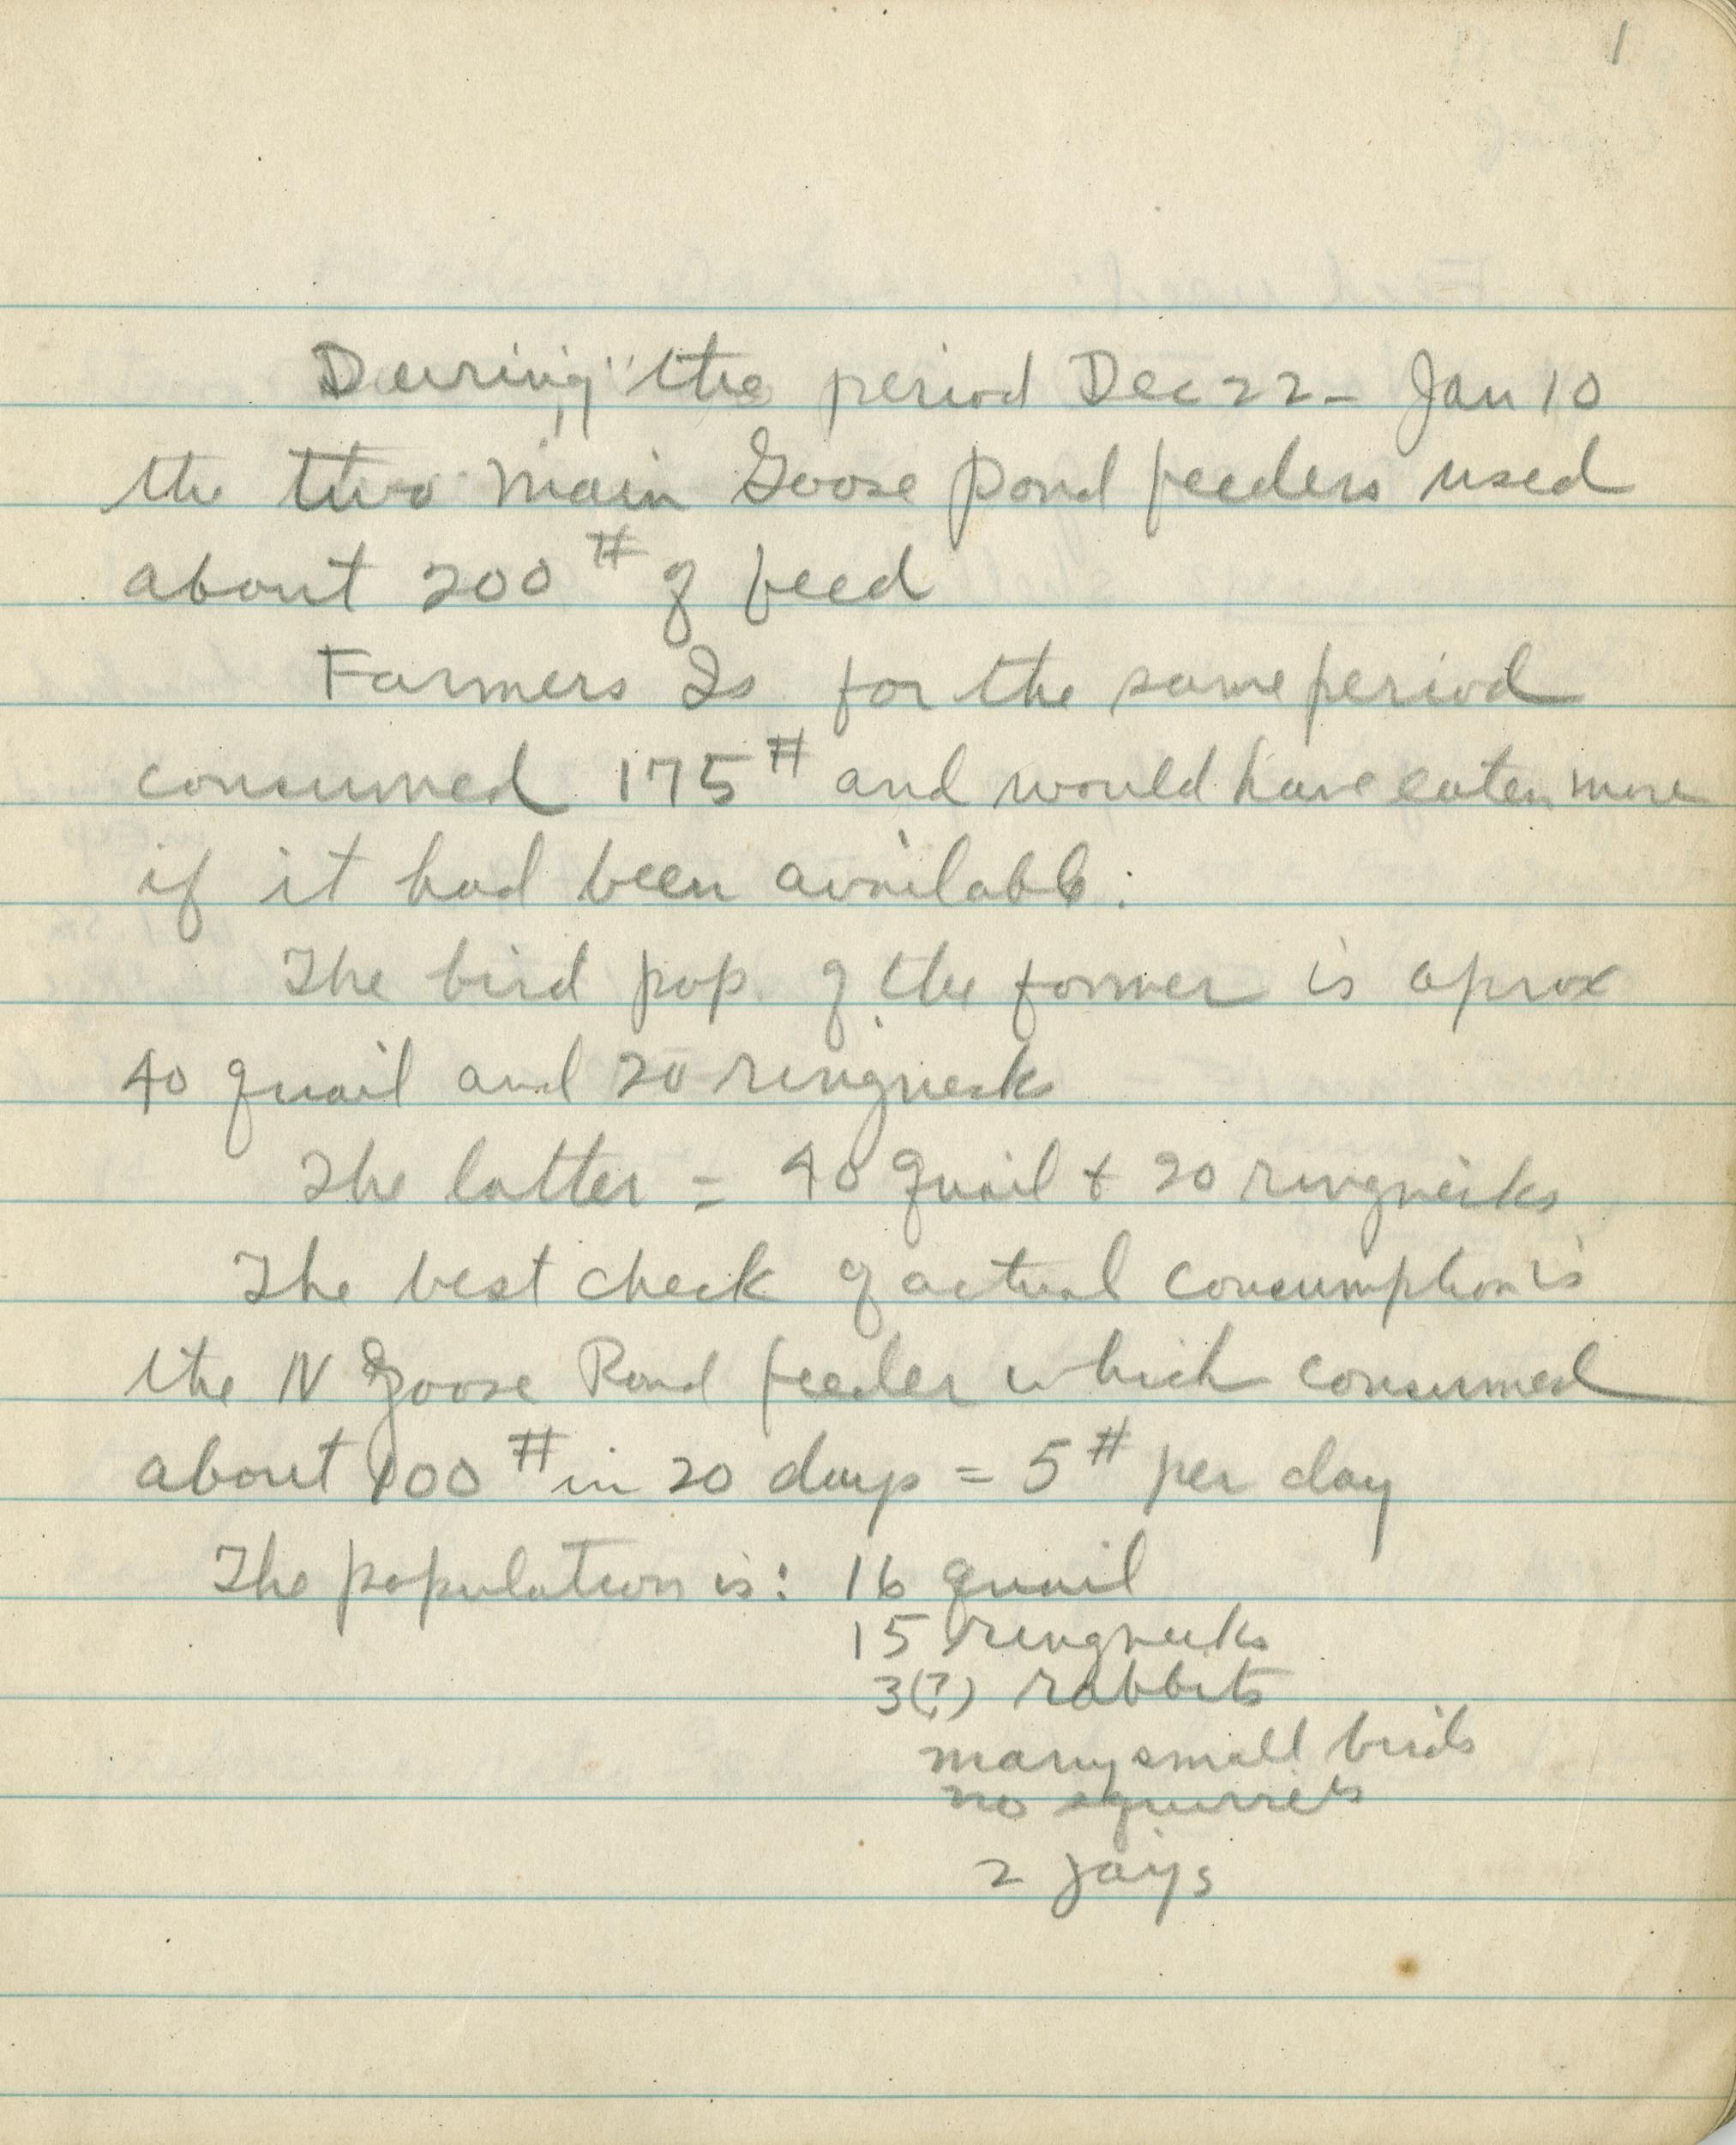 1
During the period Dec 22 - Jan 10
the two main Goose Pond feeders used
about 200 # of feed
Farmers Is for the same period
consumed 175 # and would have eaten more
if it had been available.
The bird pop. of the former is aprox
40 quail and 20 ringnecks
The latter = 40 quail + 20 ringnecks
The best check of actual consumption is
the N Goose Pond feeder which consumed
about 100 # in 20 days = 5 # per day
The population is: 16 quail
15 ringnecks
3(?) rabbits
many small birds
no squirrels
2 jays